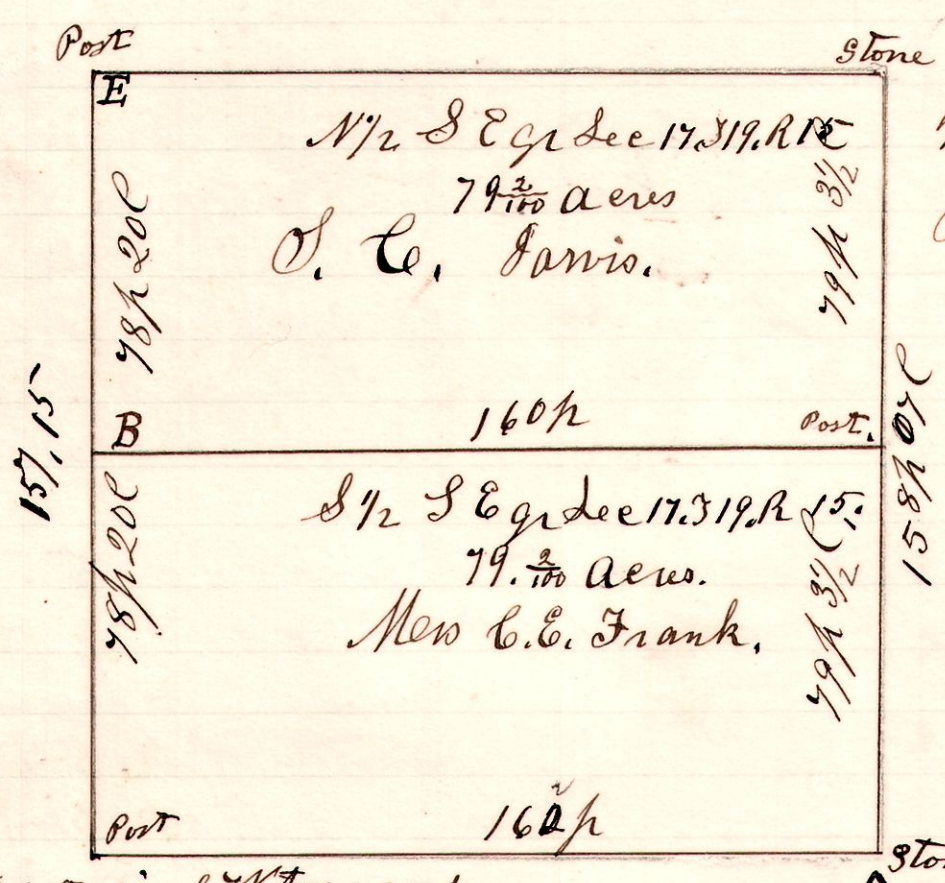 Post
Stone
E
N 1/2 S E qr Sec 17. T 19. R 15
79 2/100 acres
78p 20l
79p 3 1/2 l
157.15
B
160p
Post.
158p 07l
S 1/2 S E qr Sec 17. T 19. R 15.
79. 2/100 acres.
78p 20l
C. E. Frank.
79p 3 1/2 l
Post
p